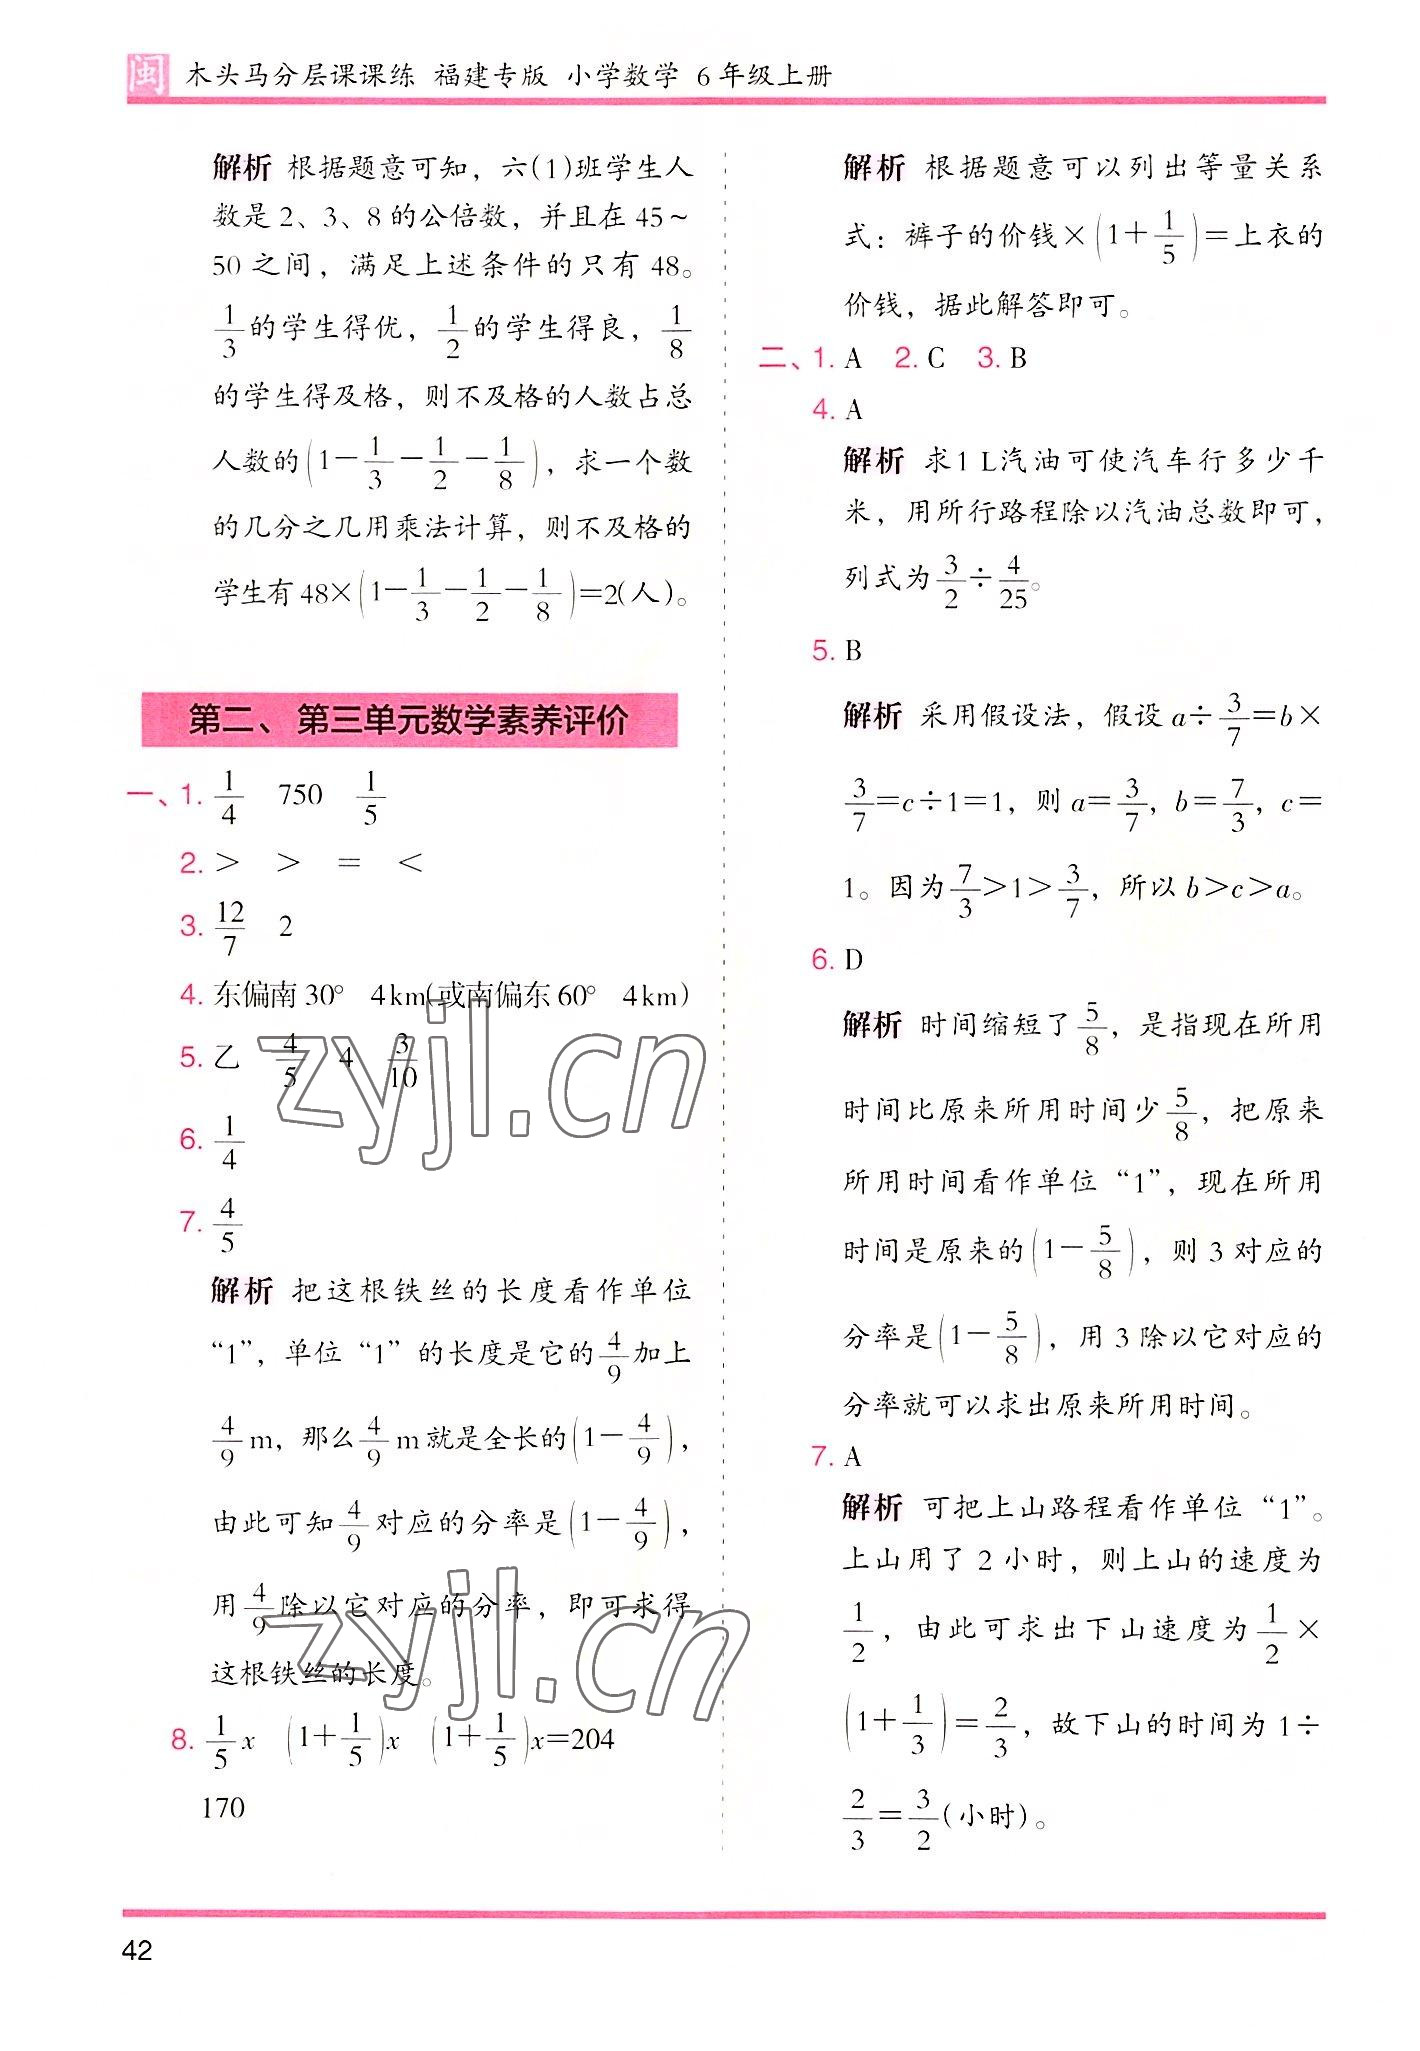 闽 木头马分层课课练 福建专版 小学数学 6年级上册
解析 根据题意可知，六(1)班学生人
数是2、3、8的公倍数，并且在45～
50之间，满足上述条件的只有48。
1/3的学生得优，1/2的学生得良，1/8
的学生得及格，则不及格的人数占总
人数的(1－1/3－1/2－1/8)，求一个数
的几分之几用乘法计算，则不及格的
学生有48×(1－1/3－1/2－1/8)=2(人)。
第二、第三单元数学素养评价
一、1. 1/4 750 1/5
2. > > = <
3. 12/7 2
4. 东偏南30° 4km(或南偏东60° 4km)
5. 乙 4/5 4 3/10
6. 1/4
7. 4/5
解析 把这根铁丝的长度看作单位
“1”，单位“1”的长度是它的4/9加上
4/9m，那么4/9m就是全长的(1－4/9)，
由此可知4/9对应的分率是(1－4/9)，
用4/9除以它对应的分率，即可求得
这根铁丝的长度。
8. 1/5x (1+1/5)x (1+1/5)x=204
170
解析 根据题意可以列出等量关系
式：裤子的价钱×(1+1/5)=上衣的
价钱，据此解答即可。
二、1. A 2. C 3. B
4. A
解析 求1L汽油可使汽车行多少千
米，用所行路程除以汽油总数即可，
列式为3/2÷4/25。
5. B
解析 采用假设法，假设a÷3/7=b×
3/7=c÷1=1，则a=3/7，b=7/3，c=
1。因为7/3>1>3/7，所以b>c>a。
6. D
解析 时间缩短了5/8，是指现在所用
时间比原来所用时间少5/8，把原来
所用时间看作单位“1”，现在所用
时间是原来的(1－5/8)，则3对应的
分率是(1－5/8)，用3除以它对应的
分率就可以求出原来所用时间。
7. A
解析 可把上山路程看作单位“1”。
上山用了2小时，则上山的速度为
1/2，由此可求出下山速度为1/2×
(1+1/3)=2/3，故下山的时间为1÷
2/3=3/2(小时)。
42
zyjl.cn
zyjl.cn